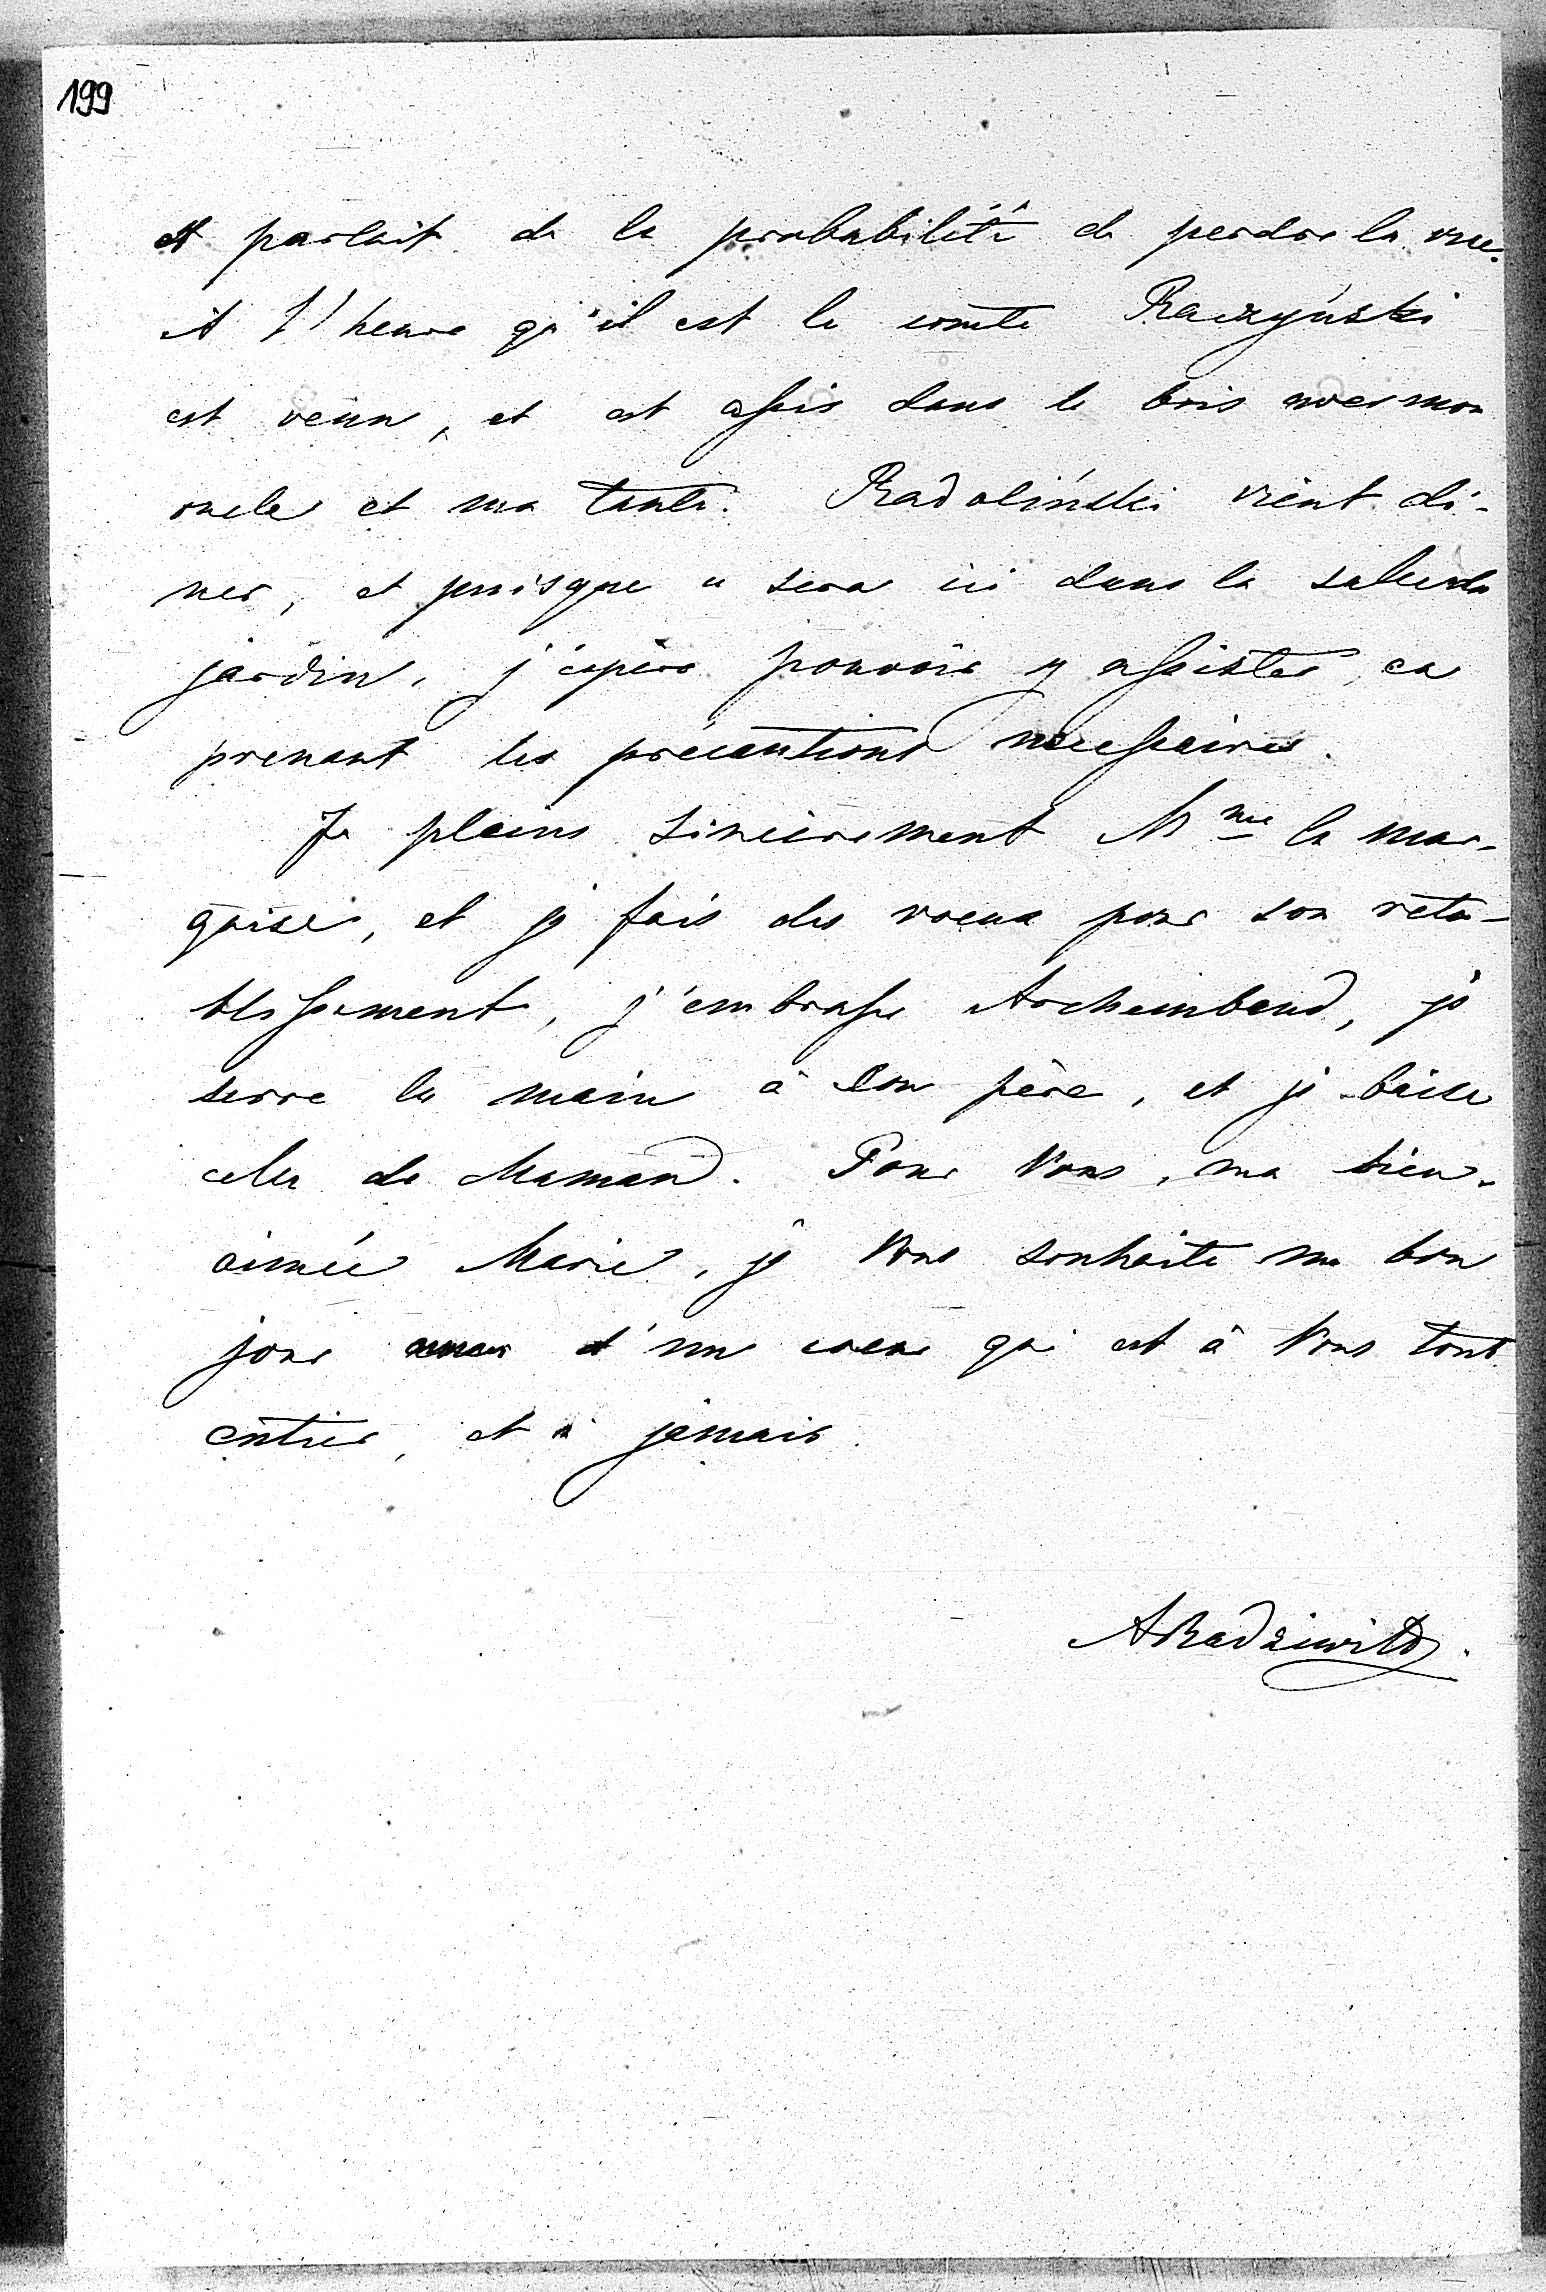 199
et parlait de la probabilité de perdre la vue.
A l'heure qu'il est le comte Raczyński
est venu, et est assis dans le bois avec mon
oncle et ma tante. Radoliński vient dî-
ner, et puisque ce sera ici dans la salle du
jardin, j'espère pouvoir y assister, en
prenant les précautions nécessaires.
Je plains sincèrement Mme la mar-
quise, et je fais des voeux pour son réta-
blissement, j'embrasse Archambaud, je
serre la main à son père, et je baise
celle de Maman. Pour Vous, ma bien-
aimée Marie, je Vous souhaite un bon
jour d'un coeur qui est à Vous tout
entier, et à jamais.
ARadziwiłł.